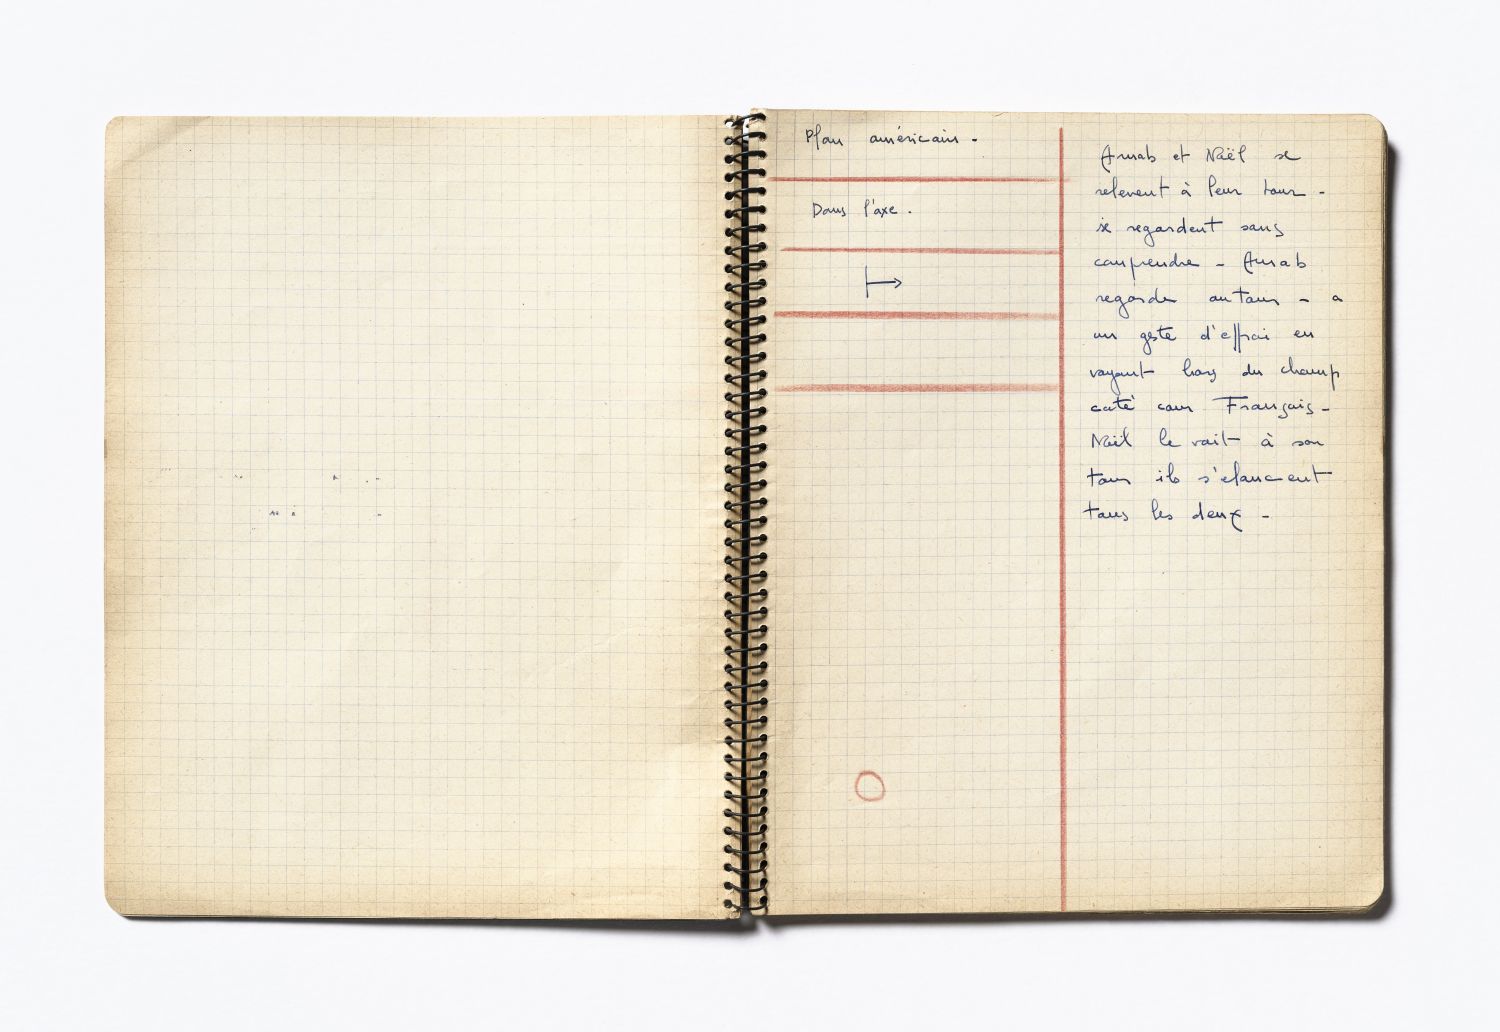 Plan américain -
Dans l'axe.
Arnab et Noël se
relevent à leur tour -
se regardent sans
comprendre - Arnab
regarde autour - a
un geste d'effroi en
voyant hors du champ
coté cour François -
Noël le voit à son
tour ils s'elancent
tous les deux -